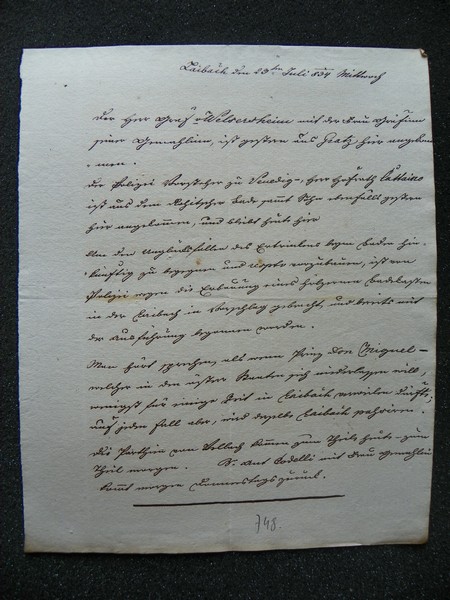 Laibach den 23ten Juli 834 Mittwoch
Der Herr Graf v Welsersheim mit der Frau Gräfinn
seiner Gemahlinn, ist gestern aus Gratz hier angekom
men.
Der Polizei Vorsteher zu Venedig, Herr Hofrath Cattanei
ist aus dem Rohitscher Bade samt Sohn ebenfalls gestern
hier angekommen, und bleibt heute hier
Um den Unglücksfällen des Ertrinkens beym Baden hin
künftig zu begegnen und vorzubauen, ist von
Polizei wegen die Erbauung eines hölzernen Badekasten
in der Laibach in Vorschlag gebracht, und bereits mit
der Ausführung begonnen worden.
Man hört sprechen, als wenn Prinz Don Miguel
welcher in den östr Staaten sich niederlassen will,
wenigst für einige Zeit in Laibach verweilen dürfte,
auf jeden Fall aber, wird derselbe Laibach passiren.
Die Parthien von Vellach kommen zum Theil heute, zum
Theil morgen. Br. Ant Codelli mit Frau Gemahlin
kommt morgen Donnerstags zurück.
748.